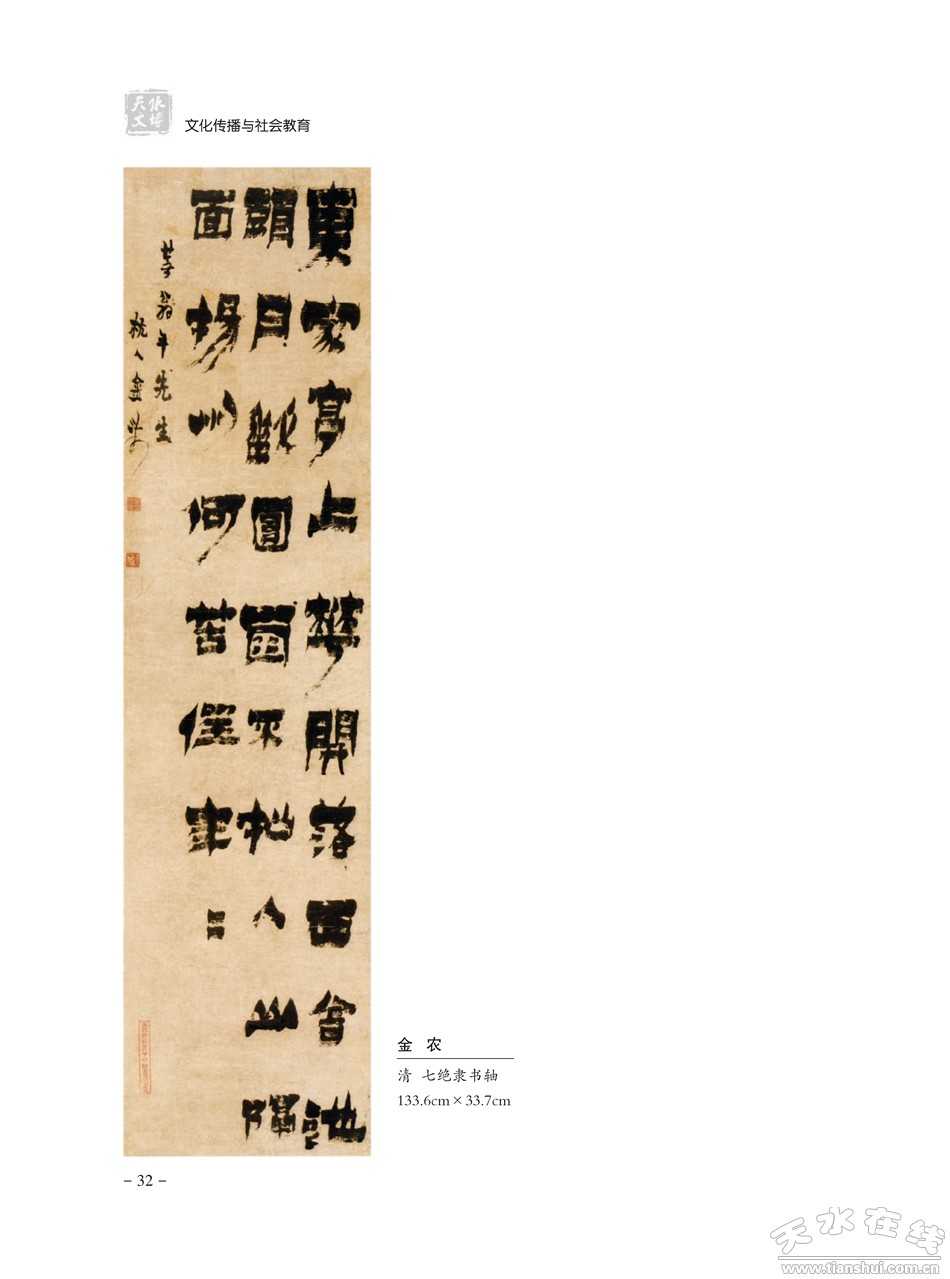 天水文博
文化传播与社会教育
東家亭上華開落西舍池
頭月缺圓不人山隔
面楊州何苦年〻
翁年先生
杭人金農
金 农
清 七绝隶书轴
133.6cm×33.7cm
- 32 -
天水在线
www.tianshui.com.cn